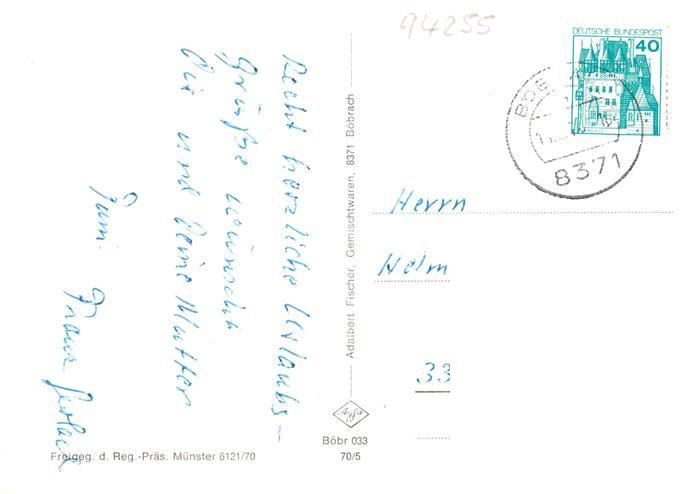 94255
DEUTSCHE BUNDESPOST
40
8371
Recht herzliche Urlaubs-
grüße wünscht
Dir und Deine Mutter
Fam.
Franz
Adalbert Fischer, Gemischtwaren, 8371 Böbrach
Herrn
Helm
33
Agfa
Böbr 033
70/5
Freigeg. d. Reg.-Präs. Münster 6121/70